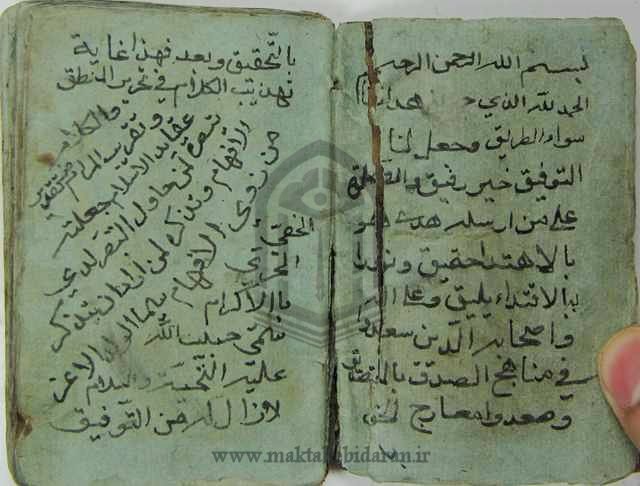 بسم الله الرحمن الرحيم
الحمد لله الذي هدانا
سواء الطريق وجعل لنا
التوفيق خير رفيق والصلوة
على من ارسله هدى هو
بالاهتداء حقيق ونورا
به الاقتداء يليق وعلى اله
واصحابه الذين سعدوا
في مناهج الصدق بالتصديق
وصعدوا معارج الحق
بالتحقيق وبعد فهذا غاية
تهذيب الكلام في تحرير المنطق
والكلام وتقريب المرام من تقرير
عقائد الاسلام جعلته
تبصرة لمن حاول التبصر لدى
الافهام وتذكرة لمن اراد ان يتذكر
من ذوي الافهام سيما الولد الاعز
الحفي
الحري
بالاكرام
سمي حبيب الله
عليه التحية والسلام
لا زال له من التوفيق
www.maktabebidaran.ir